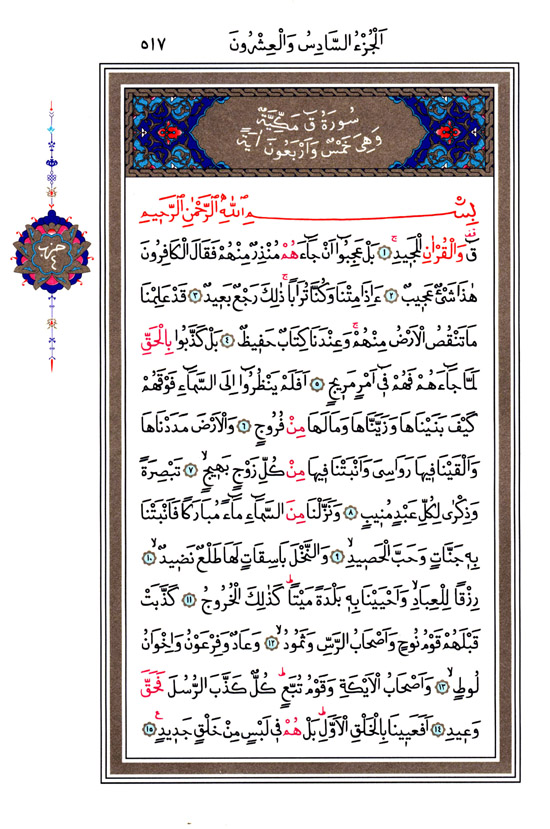 اَلْجُزْءُ السَّادِسُ وَالْعِشْرُونَ ٥١٧
سُورَةُ قٓ مَكِّيَّةٌ
وَهِيَ خَمْسٌ وَاَرْبَعُونَ اٰيَةً
بِسْمِ اللّٰهِ الرَّحْمٰنِ الرَّحِيمِ
قٓ وَالْقُرْاٰنِ الْمَجِيدِۚ ﴿١﴾ بَلْ عَجِبُٓوا اَنْ جَٓاءَهُمْ مُنْذِرٌ مِنْهُمْ فَقَالَ الْكَافِرُونَ
هٰذَا شَيْءٌ عَجِيبٌ ﴿٢﴾ ءَاِذَا مِتْنَا وَكُنَّا تُرَابًاۚ ذٰلِكَ رَجْعٌ بَعِيدٌ ﴿٣﴾ قَدْ عَلِمْنَا
مَا تَنْقُصُ الْاَرْضُ مِنْهُمْۚ وَعِنْدَنَا كِتَابٌ حَفِيظٌ ﴿٤﴾ بَلْ كَذَّبُوا بِالْحَقِّ
لَمَّا جَٓاءَهُمْ فَهُمْ فِٓي اَمْرٍ مَرِيجٍ ﴿٥﴾ اَفَلَمْ يَنْظُرُٓوا اِلَى السَّمَٓاءِ فَوْقَهُمْ
كَيْفَ بَنَيْنَاهَا وَزَيَّنَّاهَا وَمَا لَهَا مِنْ فُرُوجٍ ﴿٦﴾ وَالْاَرْضَ مَدَدْنَاهَا
وَاَلْقَيْنَا فِيهَا رَوَاسِيَ وَاَنْبَتْنَا فِيهَا مِنْ كُلِّ زَوْجٍ بَهِيجٍۙ ﴿٧﴾ تَبْصِرَةً
وَذِكْرٰى لِكُلِّ عَبْدٍ مُنِيبٍ ﴿٨﴾ وَنَزَّلْنَا مِنَ السَّمَٓاءِ مَٓاءً مُبَارَكًا فَاَنْبَتْنَا
بِهٖ جَنَّاتٍ وَحَبَّ الْحَصِيدِۙ ﴿٩﴾ وَالنَّخْلَ بَاسِقَاتٍ لَهَا طَلْعٌ نَضِيدٌۙ ﴿١٠﴾
رِزْقًا لِلْعِبَادِۙ وَاَحْيَيْنَا بِهٖ بَلْدَةً مَيْتًاۜ كَذٰلِكَ الْخُرُوجُ ﴿١١﴾ كَذَّبَتْ
قَبْلَهُمْ قَوْمُ نُوحٍ وَاَصْحَابُ الرَّسِّ وَثَمُودُۙ ﴿١٢﴾ وَعَادٌ وَفِرْعَوْنُ وَاِخْوَانُ
لُوطٍۙ ﴿١٣﴾ وَاَصْحَابُ الْاَيْكَةِ وَقَوْمُ تُبَّعٍۜ كُلٌّ كَذَّبَ الرُّسُلَ فَحَقَّ
وَعِيدِ ﴿١٤﴾ اَفَعَيِينَا بِالْخَلْقِ الْاَوَّلِۜ بَلْ هُمْ فِي لَبْسٍ مِنْ خَلْقٍ جَدِيدٍ۟ ﴿١٥﴾